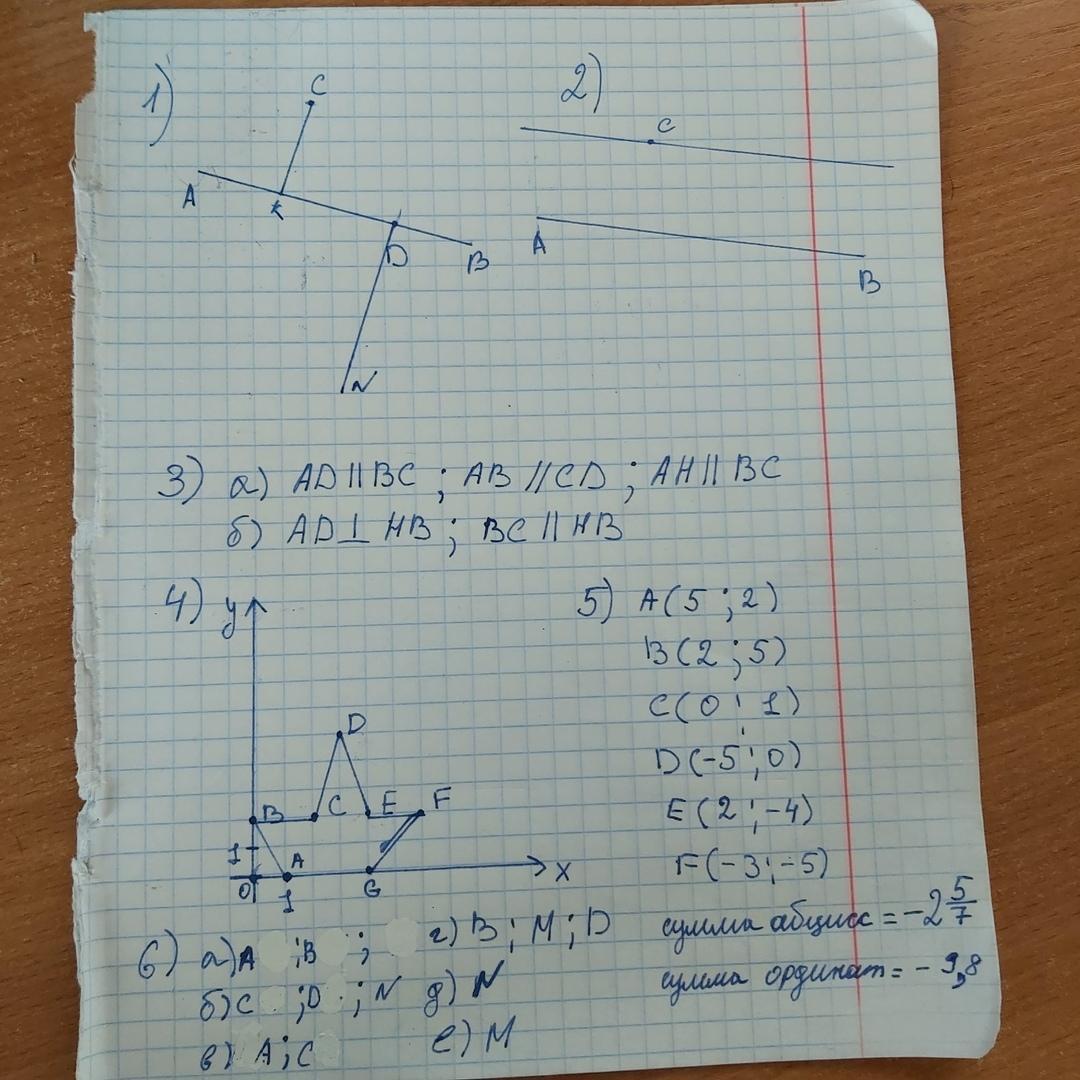 1)
C
A
K
D
B
N
2)
C
A
B
3) а) AD || BC ; AB // CD ; AH || BC
б) AD ⊥ HB ; BC || HB
4) y
D
B
C
E
F
1
A
0
1
G
x
5) A(5 ; 2)
B(2 ; 5)
C(0 ; 1)
D(-5 ; 0)
E(2 ; -4)
F(-3 ; -5)
сумма абцисс = -2 5/7
сумма ординат = - 9,8
6) а) A ; B ;
б) C ; D ; N
в) A ; C
г) B ; M ; D
д) N
е) M